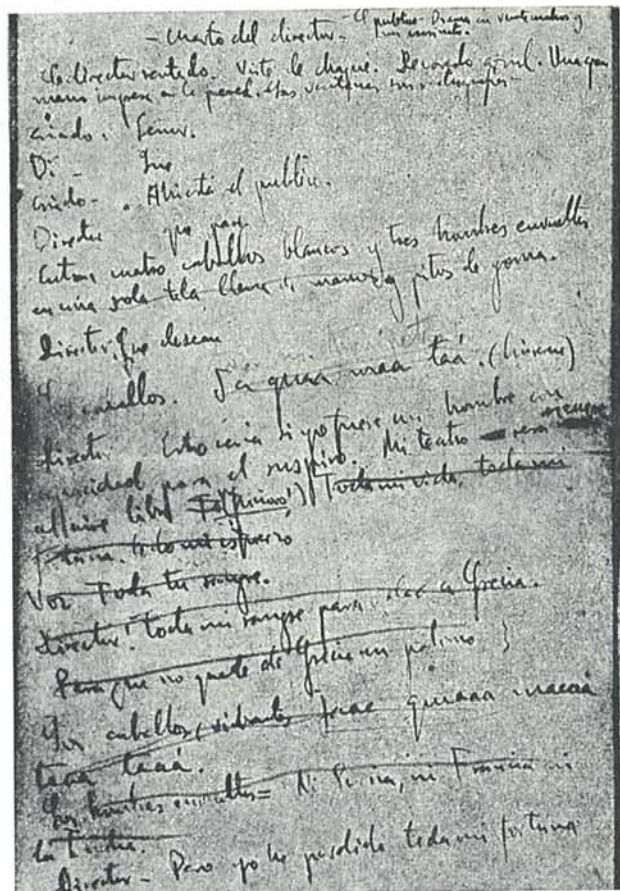 - Cuarto del director - El público - Drama en veinte cuadros y un asesinato.
El director sentado. Viste de chaqué. Decorado azul. Una gran
mano impresa en la pared. Las ventanas son
Criado. Señor.
Di - Que
Criado - . Ahí está el público.
Director que pase
Entran cuatro caballos blancos y tres hombres envueltos
en una sola tela llena de manos y pitos de goma.
Director. Que desean
caballos. (
Director Esto sería si yo fuese un hombre con
capacidad para el suspiro. Mi teatro será siempre
al aire libre Toda mi vida, toda mi
todo mi esfuerzo
Voz Toda tu sangre.
Director: toda mi sangre para a Grecia.
Para que no quede de Grecia un palmo
Los caballos
Los hombres envueltos = Ni Persia, ni Francia ni
la
Director - Pero yo he perdido toda mi fortuna